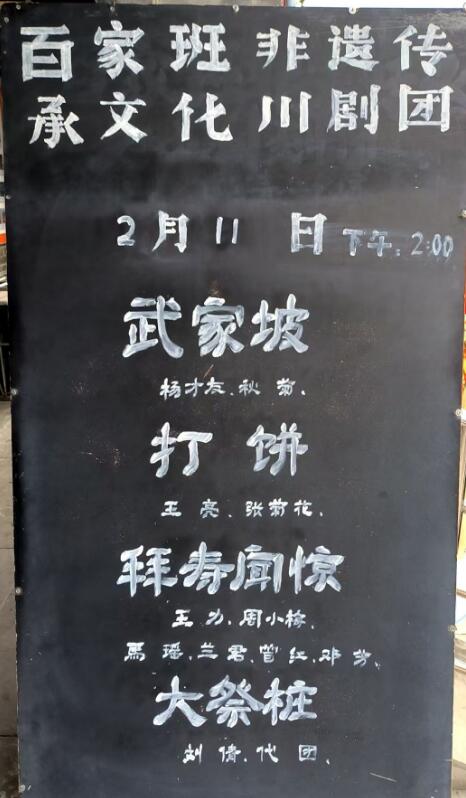 百家班非遗传
承文化川剧团
2月11 日 下午:2:00
武家坡
杨才友、秋菊、
打饼
王亮、张菊花、
拜寿闻惊
王力、周小梅、
馬瑶、兰君、曾红、邓芳、
大祭桩
刘倩、代团、